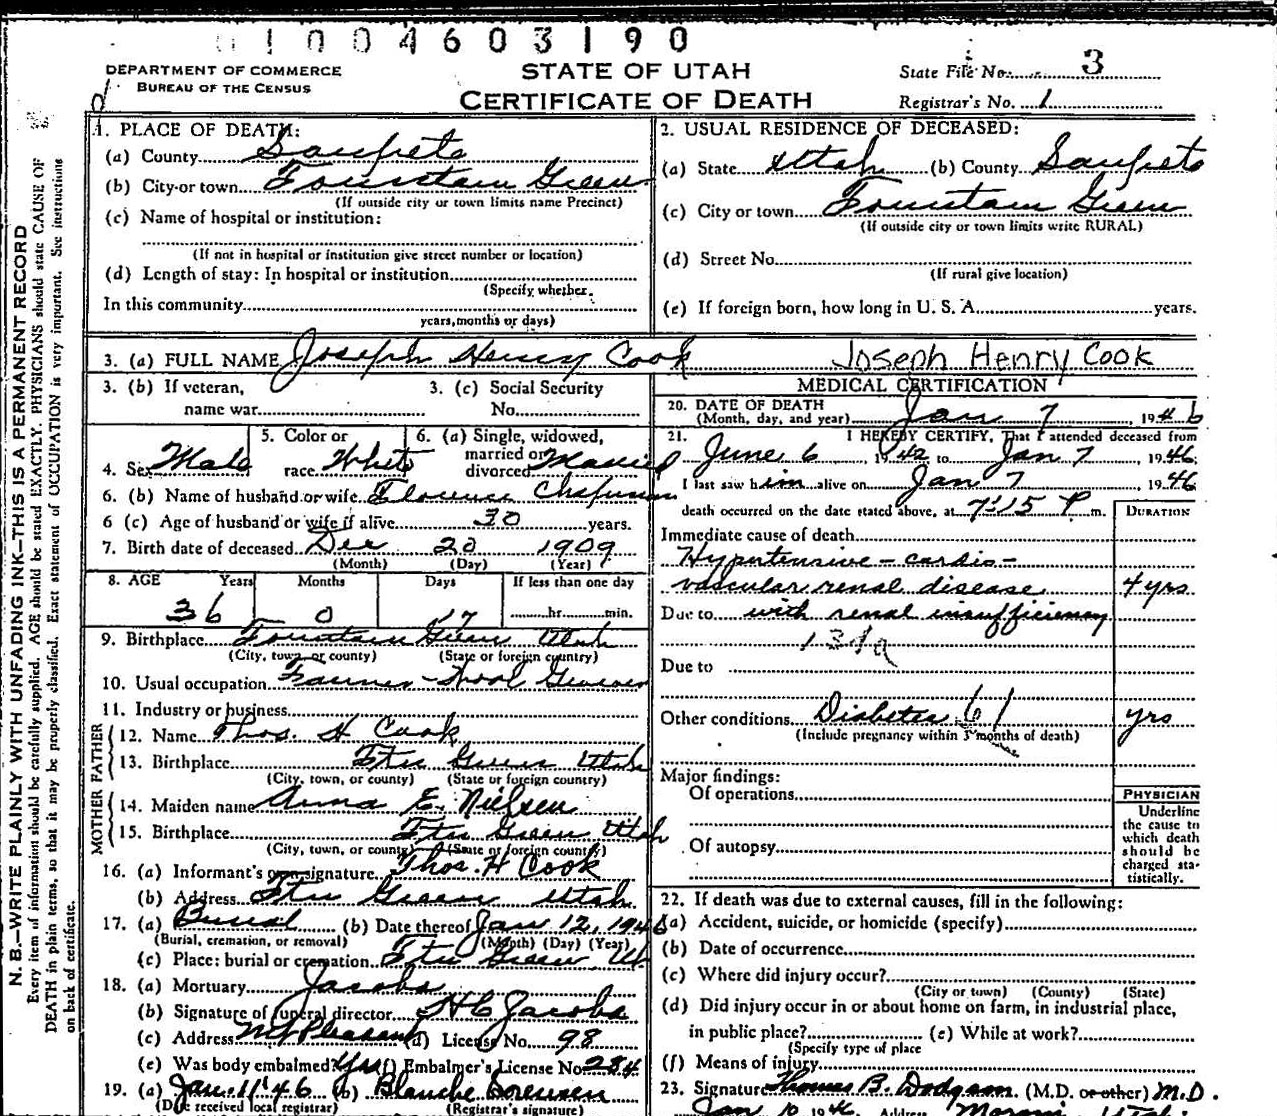 0 1 0 0 4 6 0 3 1 9 0
DEPARTMENT OF COMMERCE
BUREAU OF THE CENSUS
STATE OF UTAH
CERTIFICATE OF DEATH
State File No. 3
Registrar's No. 1
N. B.—WRITE PLAINLY WITH UNFADING INK—THIS IS A PERMANENT RECORD
Every item of information should be carefully supplied. AGE should be stated EXACTLY. PHYSICIANS should state CAUSE OF
DEATH in plain terms, so that it may be properly classified. Exact statement of OCCUPATION is very important. See instructions
on back of certificate.
1. PLACE OF DEATH:
(a) County Sanpete
(b) City or town Fountain Green
(If outside city or town limits name Precinct)
(c) Name of hospital or institution:
(If not in hospital or institution give street number or location)
(d) Length of stay: In hospital or institution
(Specify whether
In this community
years, months or days)
2. USUAL RESIDENCE OF DECEASED:
(a) State Utah (b) County Sanpete
(c) City or town Fountain Green
(If outside city or town limits write RURAL)
(d) Street No.
(If rural give location)
(e) If foreign born, how long in U. S. A. years.
3. (a) FULL NAME Joseph Henry Cook Joseph Henry Cook
3. (b) If veteran,
name war
3. (c) Social Security
No.
4. Sex Male
5. Color or
race White
6. (a) Single, widowed,
married or
divorced Married
6. (b) Name of husband or wife Florence Chapman
6 (c) Age of husband or wife if alive 30 years.
7. Birth date of deceased Dec 20 1909
(Month) (Day) (Year)
8. AGE Years Months Days If less than one day
36 0 17 hr. min.
9. Birthplace Fountain Green Utah
(City, town, or county) (State or foreign country)
10. Usual occupation Farmer - Wool Grower
11. Industry or business
FATHER
12. Name Thos. H Cook
13. Birthplace Ftn Green Utah
(City, town, or county) (State or foreign country)
MOTHER
14. Maiden name Anna E. Nielsen
15. Birthplace Ftn Green Utah
(City, town, or county) (State or foreign country)
16. (a) Informant's own signature Thos. H Cook
(b) Address Ftn Green Utah
17. (a) Burial (b) Date thereof Jan 12, 1946
(Burial, cremation, or removal) (Month) (Day) (Year)
(c) Place: burial or cremation Ftn Green, Ut
18. (a) Mortuary Jacobs
(b) Signature of funeral director H C Jacobs
(c) Address Mt Pleasant (d) License No. 98
(e) Was body embalmed? Yes (f) Embalmer's License No. 284
19. (a) Jan. 11 '46 (b) Blanche Sorensen
(Date received local registrar) (Registrar's signature)
MEDICAL CERTIFICATION
20. DATE OF DEATH
(Month, day, and year) Jan 7, 1946
21. I HEREBY CERTIFY, That I attended deceased from
June 6 1942 to Jan 7, 1946,
I last saw him alive on Jan 7, 1946
death occurred on the date stated above, at 7:15 P m.
DURATION
Immediate cause of death
Hypertensive - cardio-
vascular renal disease 4 yrs
Due to with renal insufficiency
131a
Due to
Other conditions Diabetes 61 yrs
(Include pregnancy within 3 months of death)
Major findings:
Of operations
Of autopsy
PHYSICIAN
Underline
the cause to
which death
should be
charged sta-
tistically.
22. If death was due to external causes, fill in the following:
(a) Accident, suicide, or homicide (specify)
(b) Date of occurrence
(c) Where did injury occur?
(City or town) (County) (State)
(d) Did injury occur in or about home on farm, in industrial place,
in public place? (e) While at work?
(Specify type of place
(f) Means of injury
23. Signature Thomas B. Dodgson (M.D. or other) M.D.
Jan 10 1946 Address Moroni, Utah